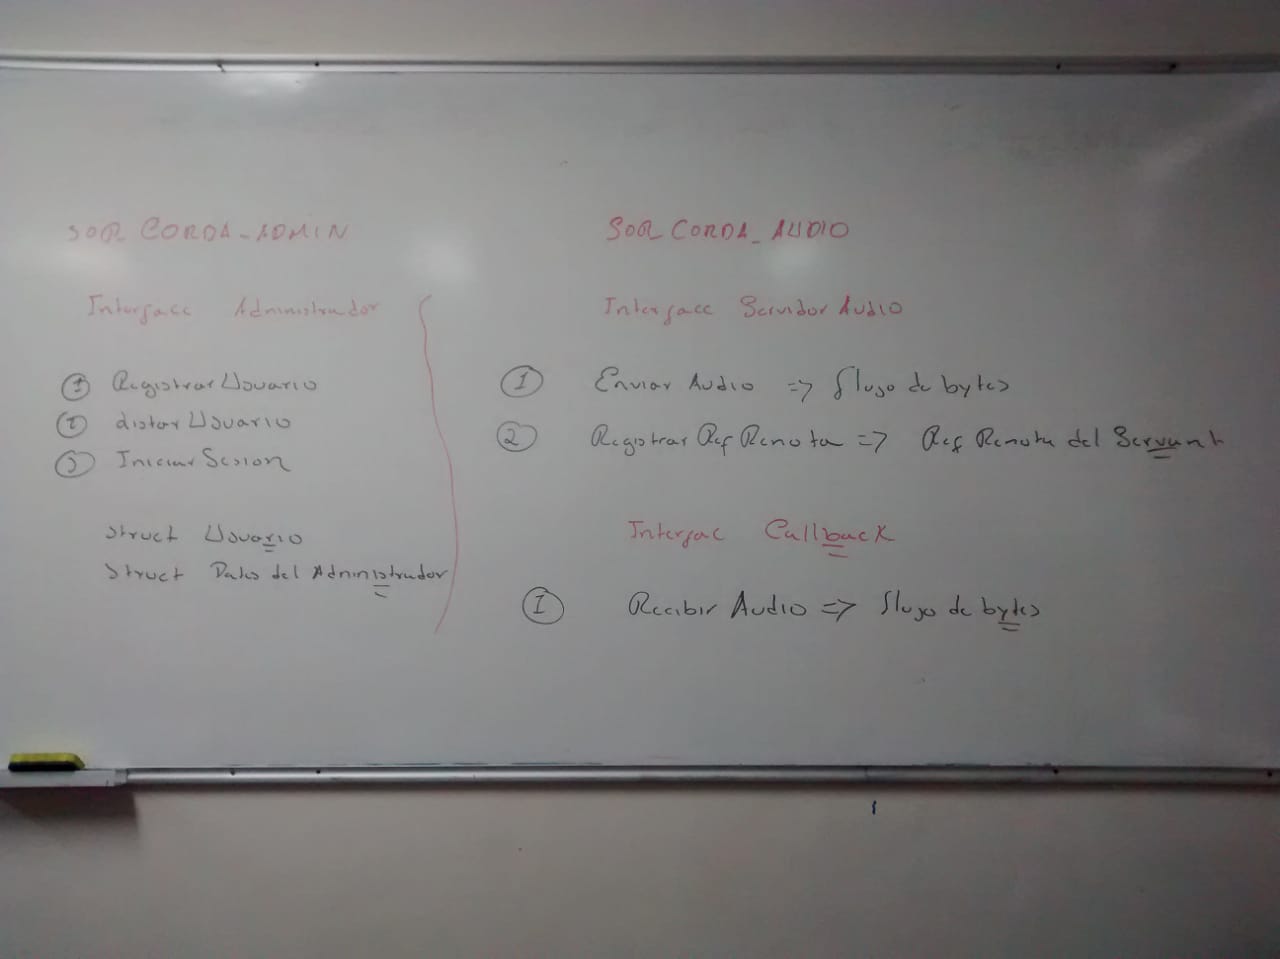 SOR CORBA_ADMIN
Interface Administrador
1 Registrar Usuario
2 listar Usuario
3 Iniciar Sesion
struct Usuario
struct Datos del Administrador
SOR CORBA_AUDIO
Interface Servidor Audio
1 Enviar Audio => flujo de bytes
2 Registrar Ref Remota => Ref Remota del Servant
Interfac Callback
1 Recibir Audio => flujo de bytes